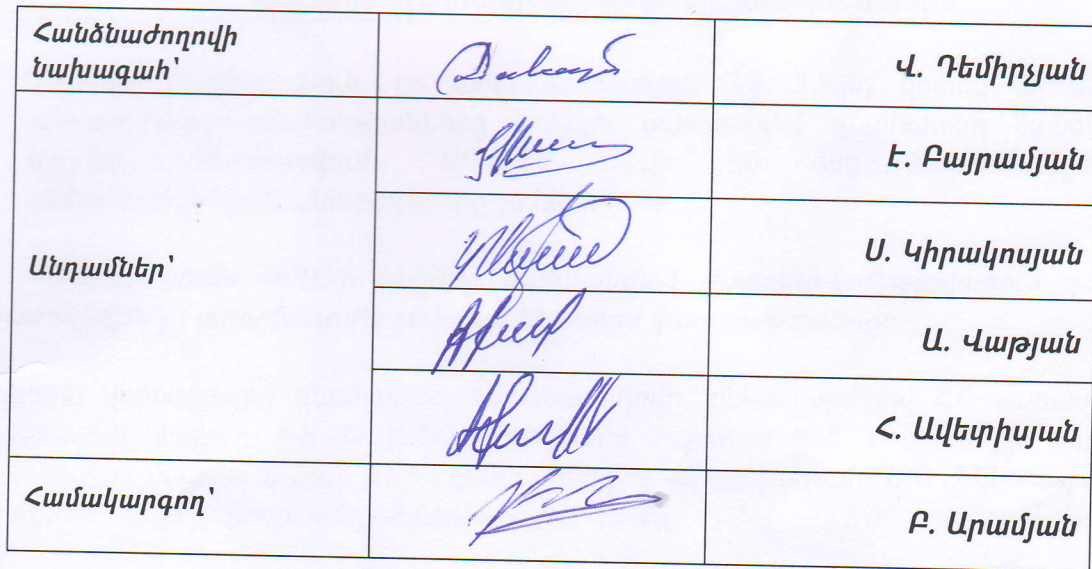 Հանձնաժողովի
նախագահ՝
Վ. Դեմիրչյան
Է. Բայրամյան
Անդամներ՝
Ս. Կիրակոսյան
Ա. Վաթյան
Հ. Ավետիսյան
Համակարգող՝
Բ. Արամյան